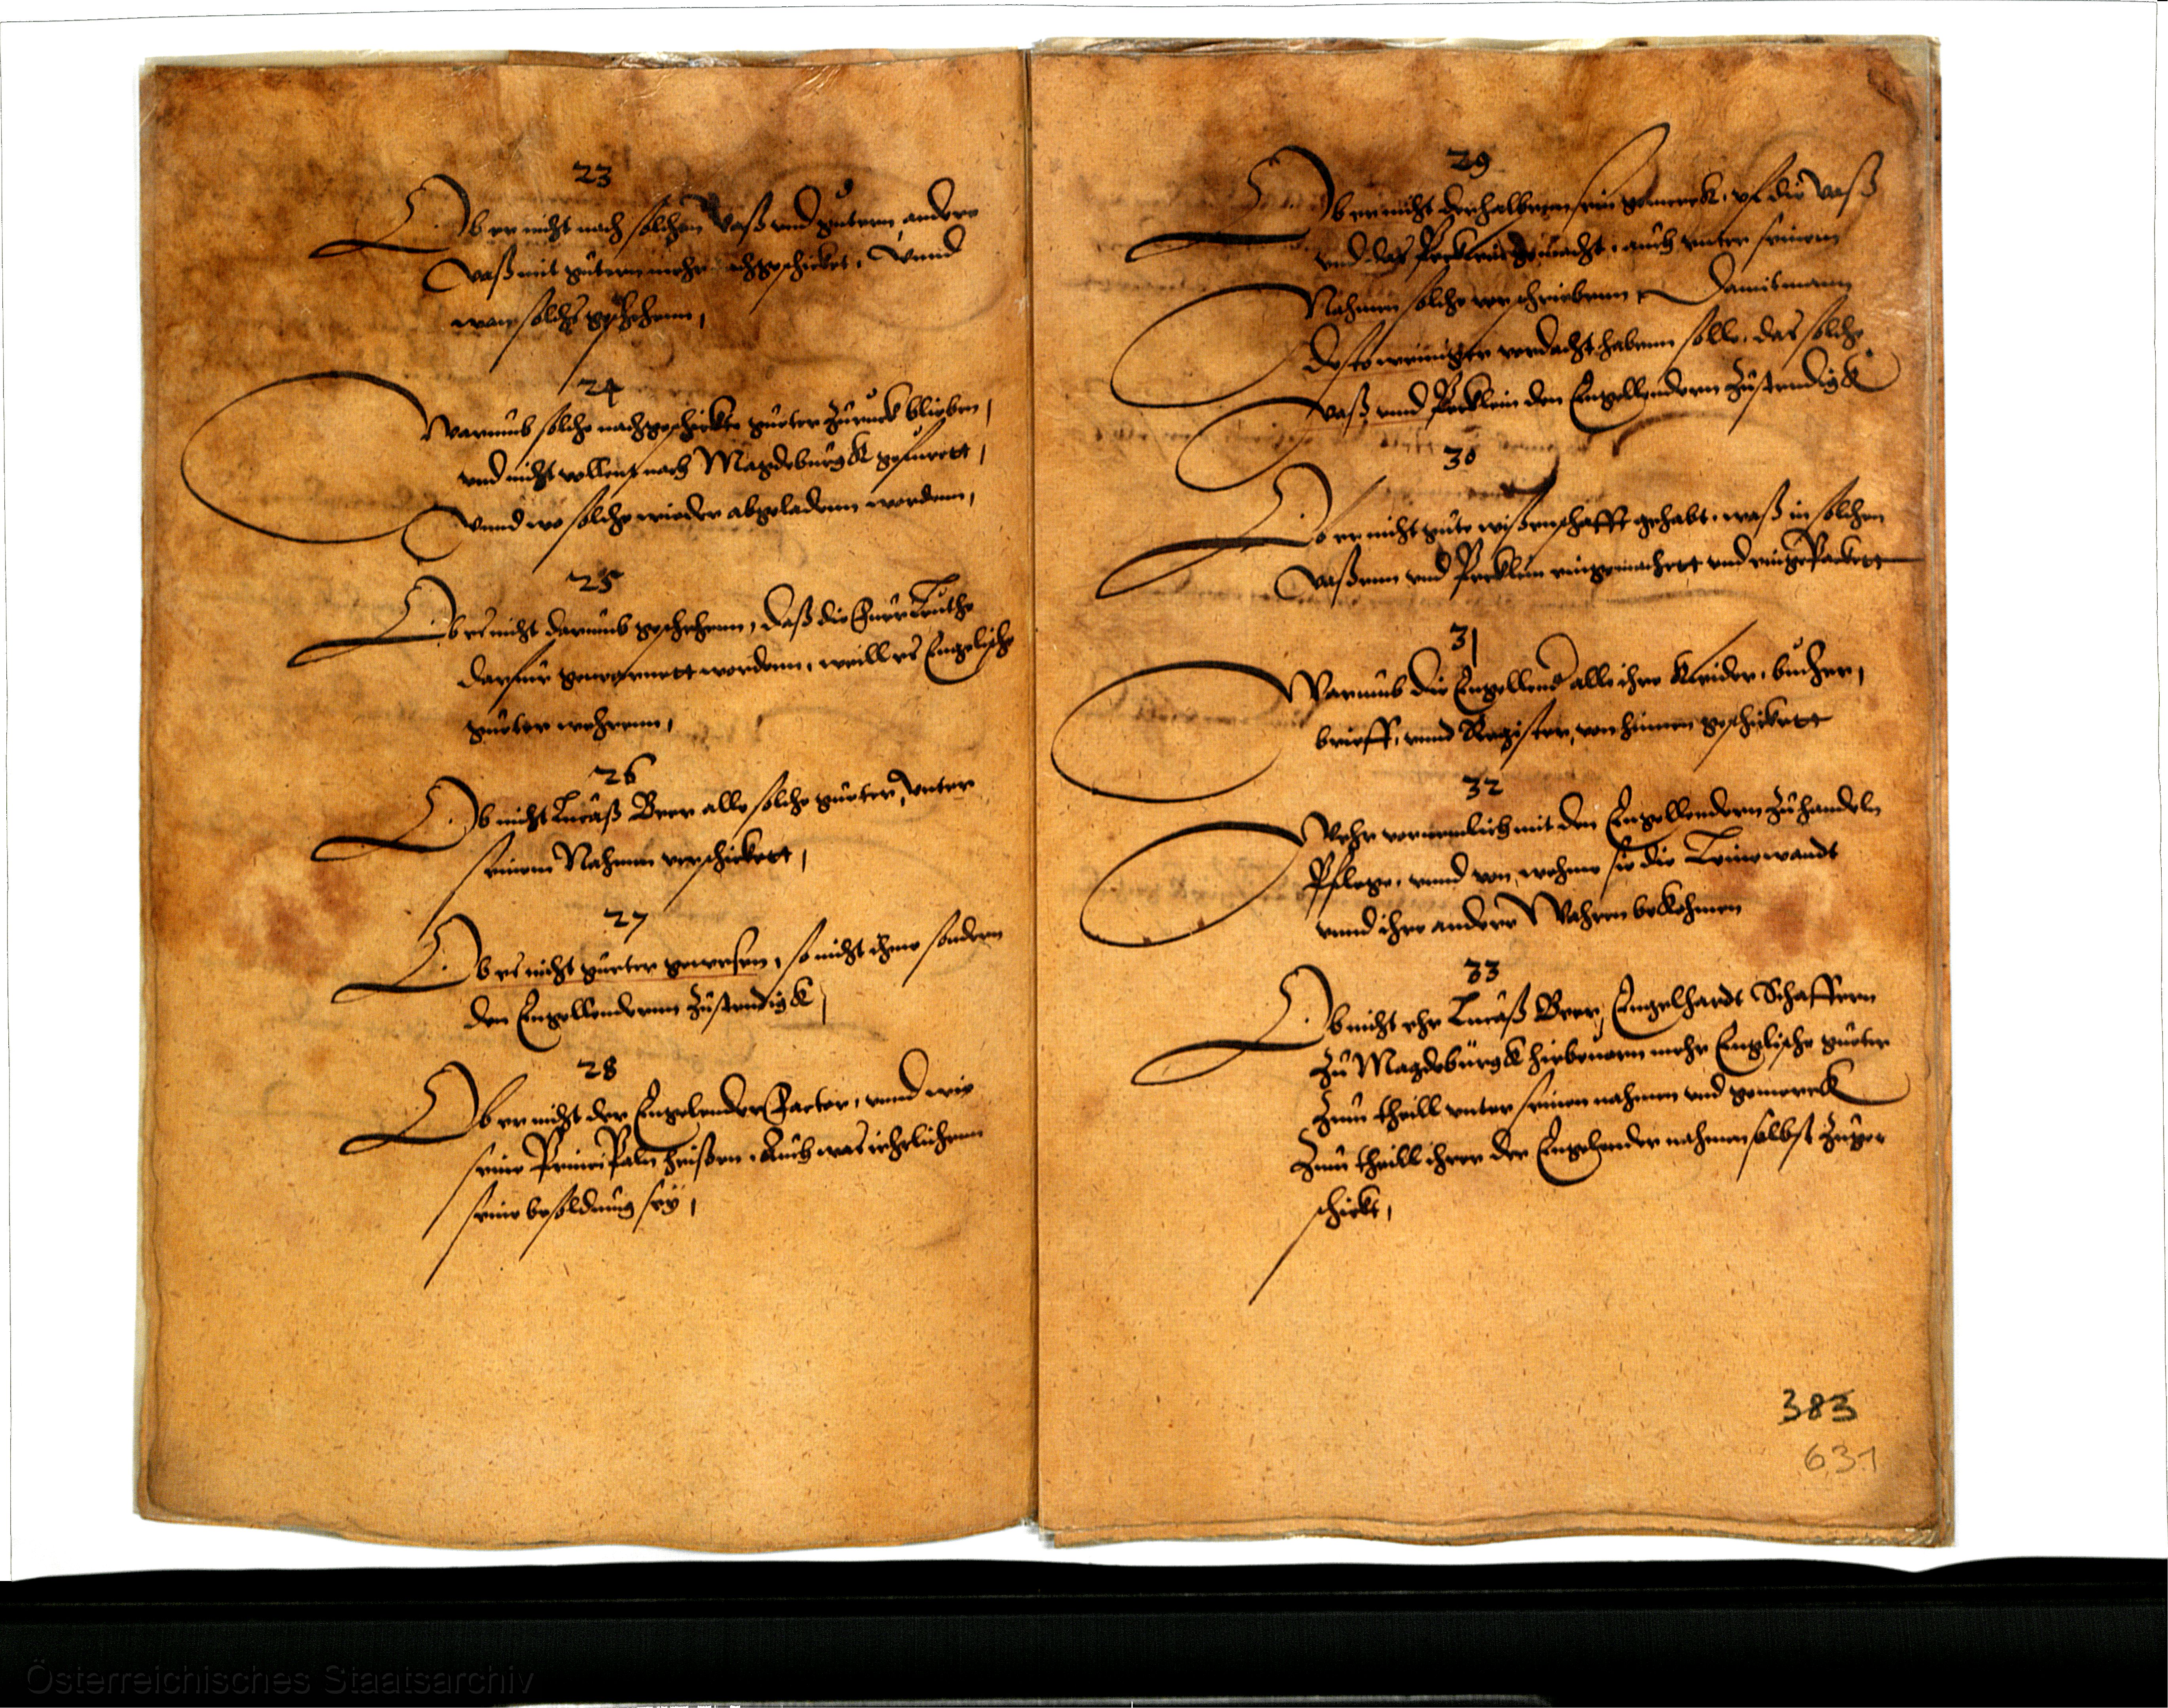 23
Ob er nicht nach solchen Vaß vnd gutern, andere
Vaß mit gutern mehr nachgeschicket, Vnnd
wan solchs geschehenn,
24
Warumb solche nachgeschickte gueter zuruck blieben,
vnd nicht vollent nach Magdeburgk gefurett,
Vnnd wo solche wieder abgeladenn wordenn,
25
Ob es nicht darumb geschehenn, daß die Fuerleuthe
darfur gewarnett wordenn, weill es Engelische
gueter wehrenn,
26
Ob nicht Lucaß Beer alle solche gueter, vnter
seinem Nahmen verschickett,
27
Ob es nicht gueter gewesen, so nicht ihme sondern
den Engellendernn zustendigk,
28
Ob er nicht der Engelender Factor, vnnd wie
seine Principaln heißen, Auch was iehrlichenn
seine besoldung sey,
29
Ob er nicht derhalbenn sein gemerck, vf die Vaß
vnd das Pecklein gemacht, auch vnter seinem
Nahmen solche verschriebenn, Damit mann
desto weniger verdacht habenn solle, das solche
Vaß vnnd Pecklein den Engellendern zustendigk
30
Ob er nicht gute wißenschafft gehabt, waß in solchen
Vaßenn vnd Pecklein eingemachett vnd eingepackett
31
Warumb die Engellend alle ihre Kleider, bucher,
brieff, vnnd Register, von hinnen geschickett
32
Wehr vornemlich mit den Engellendern zu handeln
Pflege, vnnd von wehme sie die Leinewandt
vnnd ihre andere Wahren bekohmen
33
Ob nicht ehr Lucaß Beer, Engelhardt Schaffern
zu Magdeburgk hiebeuorn mehr Englische gueter
zum theill vnter seinen nahmen vnd gemerck
zum theill ihrer der Engelender nahmen selbst zuge
schickt,
383
631
Österreichisches Staatsarchiv